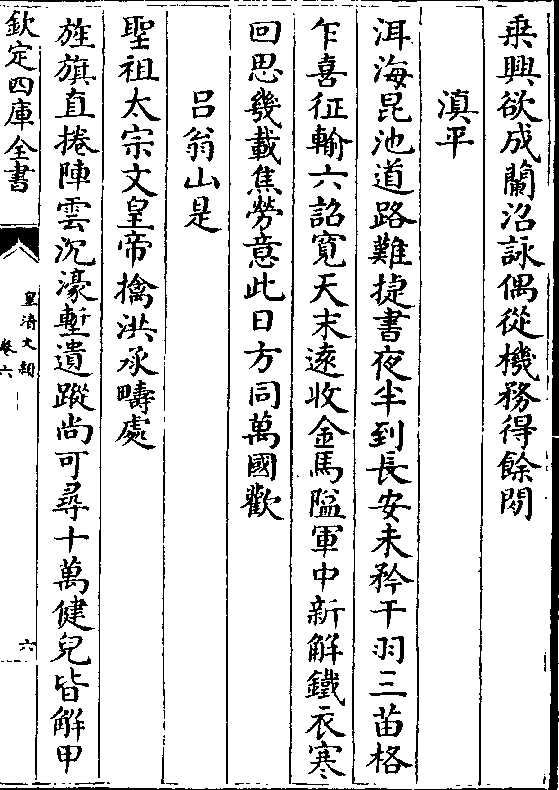 乗興欲成蘭沼詠偶從機務得餘閒
滇平
洱海昆池道路難捷書夜半到長安未矜干羽三苗格
乍喜征輸六詔寛天末逺收金馬隘軍中新解鐵衣寒
回思幾載焦勞意此日方同萬國歡
吕翁山是
聖祖太宗文皇帝擒洪承疇處
旌旗直捲陣雲沉濠塹遺蹤尚可尋十萬健兒皆解甲
欽定四庫全書
皇清文穎
卷六
六